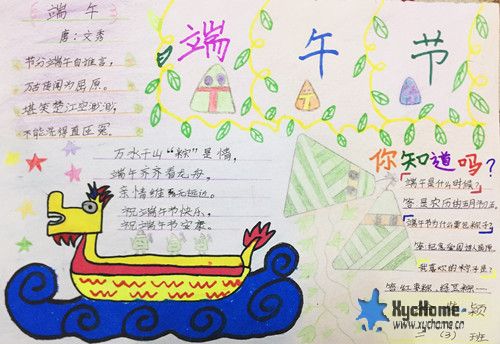 端午
唐：文秀
节分端午自谁言，
万古传闻为屈原。
堪笑楚江空渺渺，
不能洗得直臣冤。
端午节
万水千山“粽”是情，
端午齐齐看龙舟。
亲情维系无短边。
祝端午节快乐，
祝端午节安康。
你知道吗？
端午是什么时候？
答：是农历的五月初五。
端午节为什么要包粽子？
答：纪念爱国诗人屈原。
我喜欢的粽子是？
答：红枣粽、绿豆粽……
颖
二（3）班
XycHome
www.xychome.cn